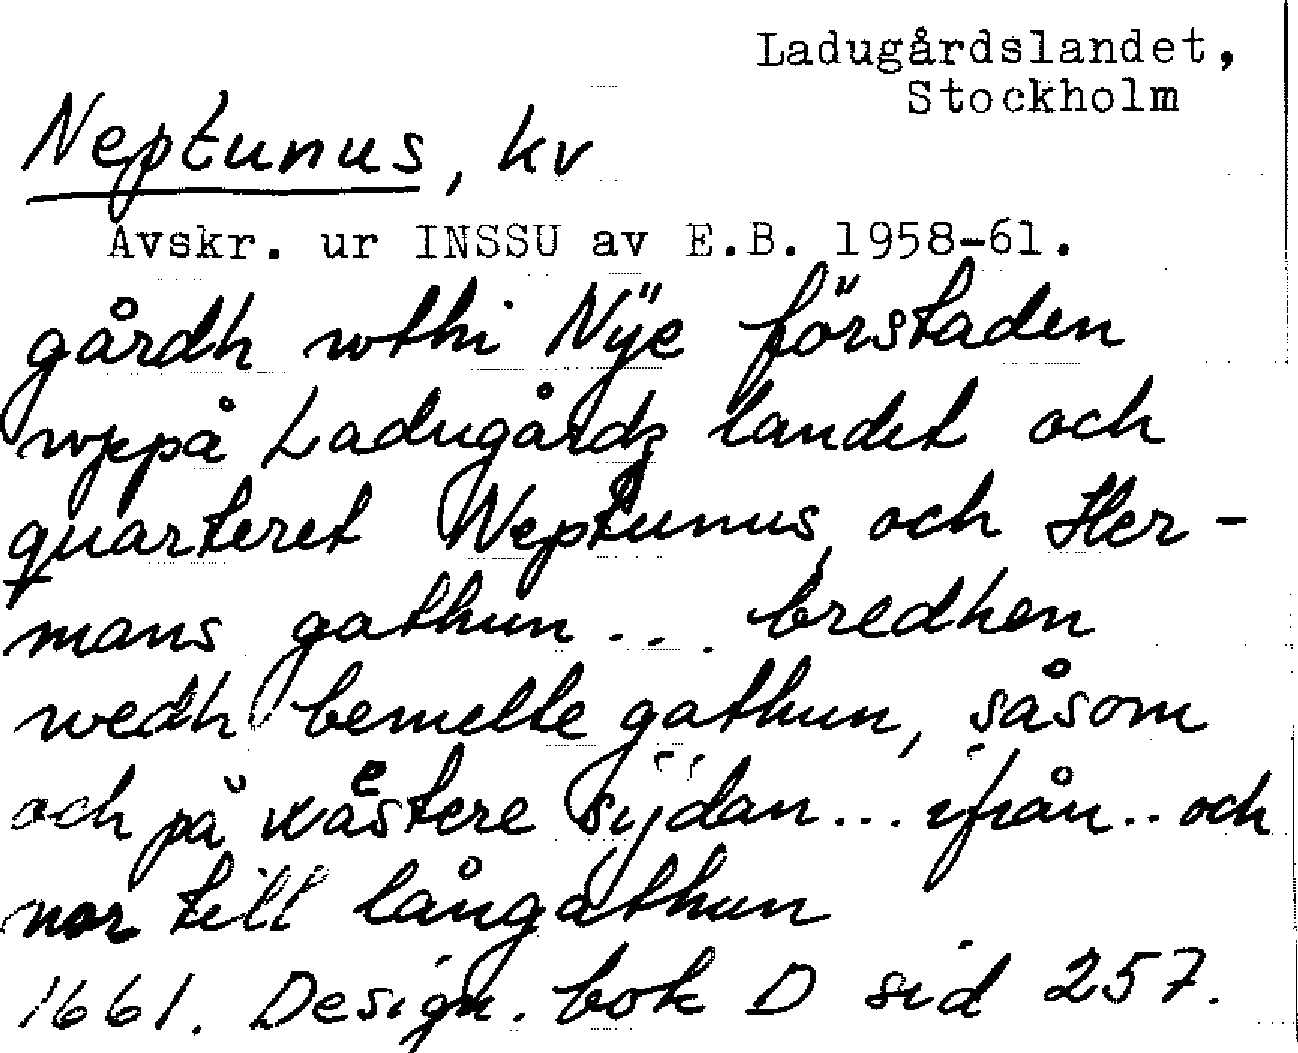 Ladugårdslandet,
Stockholm
Neptunus, kv
Avskr. ur INSSU av E.B. 1958-61.
gårdh wthi Nÿe förstaden
wppå Ladugårdz landet och
quarteret Neptunus, och Her-
mans gathun... bredhen
wedh bemelte gathun, såsom
och på wåstere sijdan... ifrån.. och
nor till långathun
1661. Design. bok D sid 257.